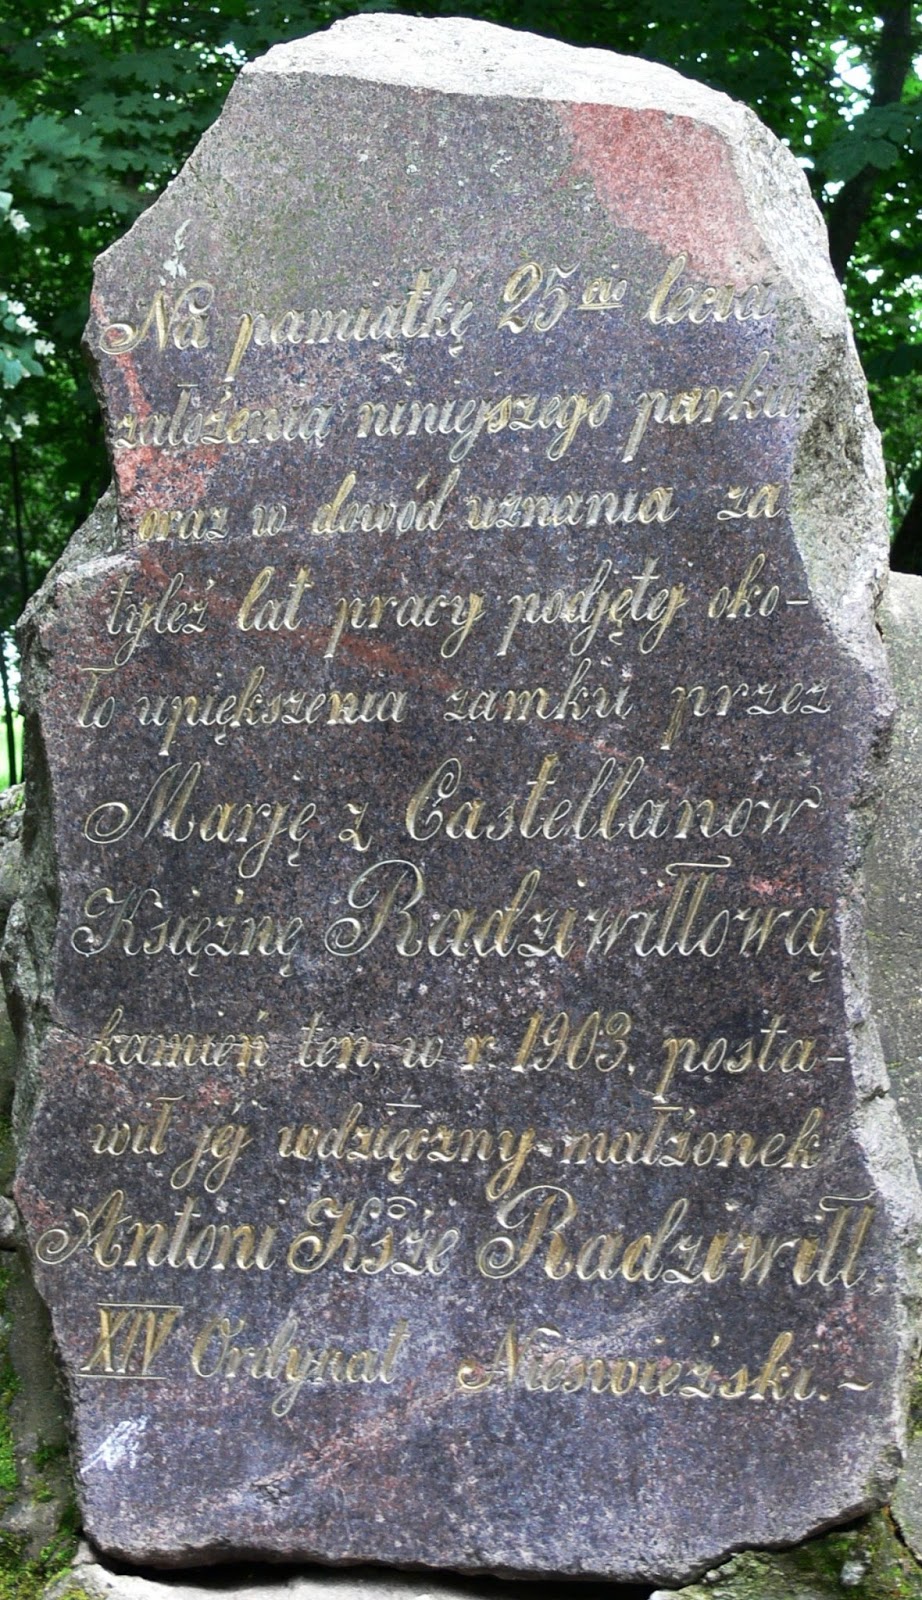 Na pamiątkę 25cio lecia
założenia niniejszego parku
oraz w dowód uznania za
tyleż lat pracy podjętej oko-
ło upiększenia zamku przez
Marję z Castellanów
Księżnę Radziwiłłową
kamień ten, w r. 1903. posta-
wił jej wdzięczny małżonek
Antoni Kśże Radziwiłł
XIV Ordynat Nieswieżski.~